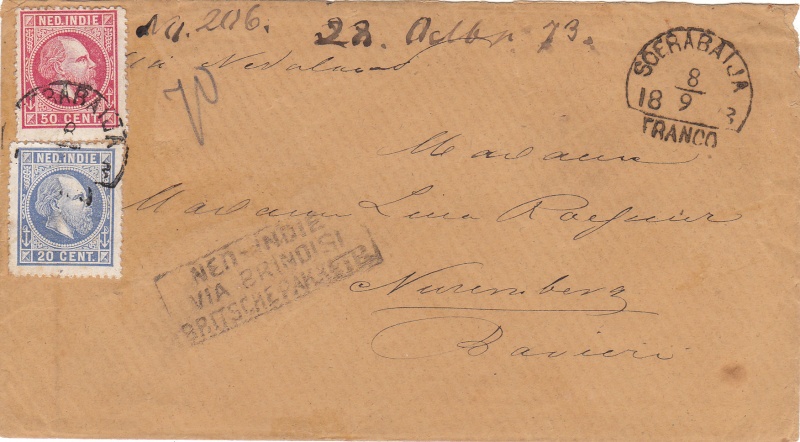 NED. INDIE
50 CENT.
NED. INDIE
20 CENT.
No. 206. 28. Octbr 73.
Via
70
SOERABAIJA
8
18 9 3
FRANCO
SOERABAIJA
8
3
Madame
Madame Lina
Nuremberg
Bavière
NED-INDIE
VIA BRINDISI
BRITSCHE PAKKETB